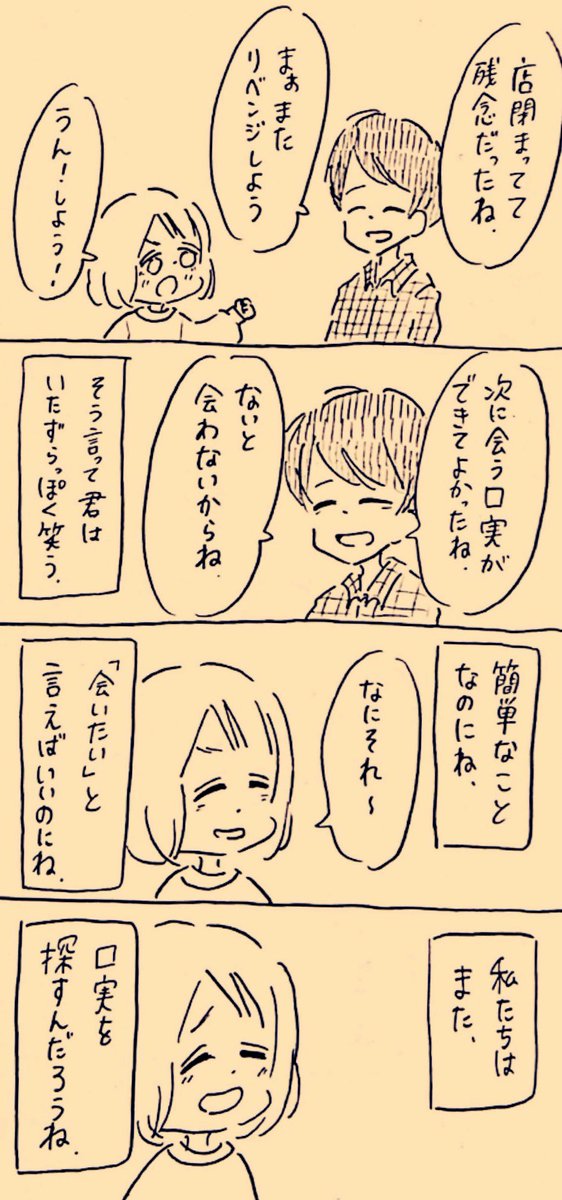 店閉まってて
残念だったね.
まぁまた
リベンジしよう
うん!しよう!
次に会う口実が
できてよかったね.
ないと
会わないからね.
そう言って君は
いたずらっぽく笑う.
簡単なこと
なのにね.
なにそれ〜
「会いたい」と
言えばいいのにね.
私たちは
また.
口実を
探すんだろうね.